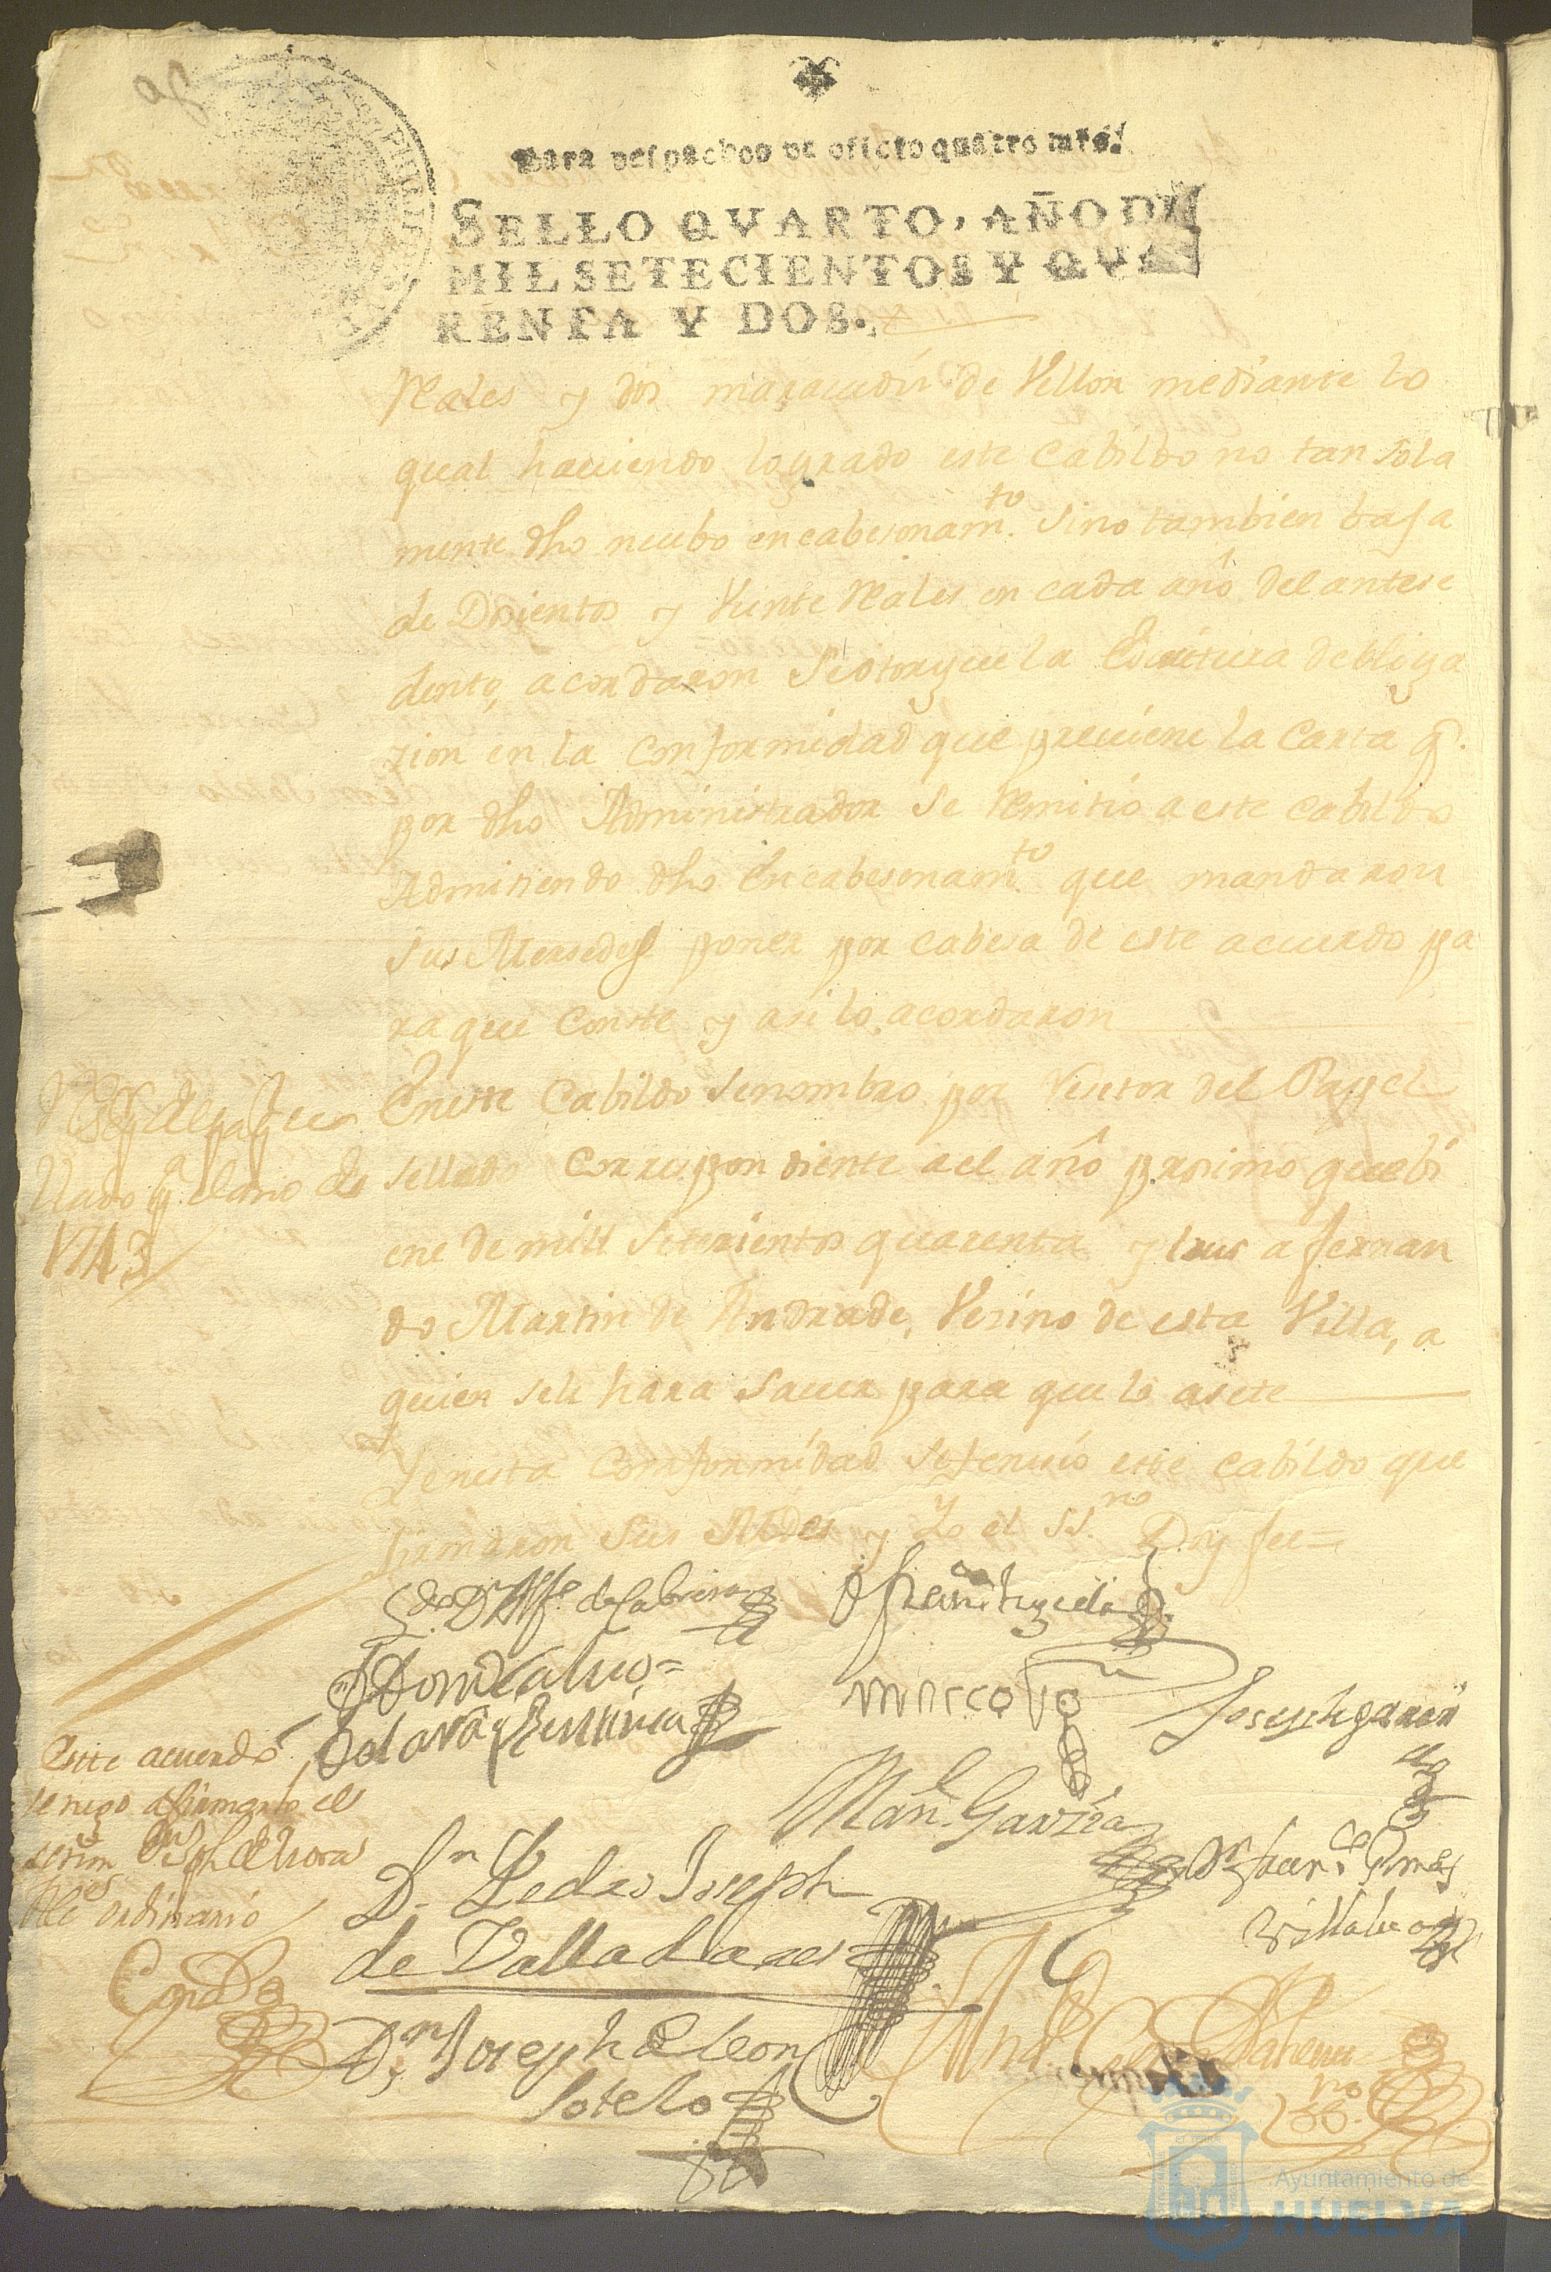 Para despachos de oficio quatro mrs.
SELLO QVARTO, AÑO DE
MIL SETECIENTOS Y QVA
RENTA Y DOS.
Reales y dos maravedis de Vellon mediante lo
qual haviendo logrado este Cabildo no tan sola
mente dho nuebo encabesonamto. sino tambien baja
de Dosientos y Veinte Reales en cada año del antese
dente, acordaron se otorgue la Escritura de obliga
zion en la Conformidad que previene la Carta q.
por dho Administrador se Remitio a este Cabildo
Admitiendo dho Encabesonamto que mandaron
sus Mersedes poner por cabesa de este acuerdo pa
ra que Conste y asi lo acordaron
En este Cabildo se nombro por Reseptor del Papel
sellado Correspondiente a el año procsimo que bi
ene de mill Setesientos quarenta y tres a fernan
do Martin de Andrade, Vesino de esta Villa, a
quien se le hara saver para que lo asete
Y en esta Conformidad se fenecio este Cabildo que
firmaron Sus Mrdes y Yo el SSno Doy fee=
Rer del papel
sellado pa el año de
1743
Ldo Dn Alfo de Cabrera
Marcos
Joseph garcia
Manl Garzia
Dn Pedro Joseph
de Valladares
Dn Joseph de Leon
Sotelo
Este acuerdo
se nego a firmarlo el
ordinario
Ayuntamiento de
HUELVA